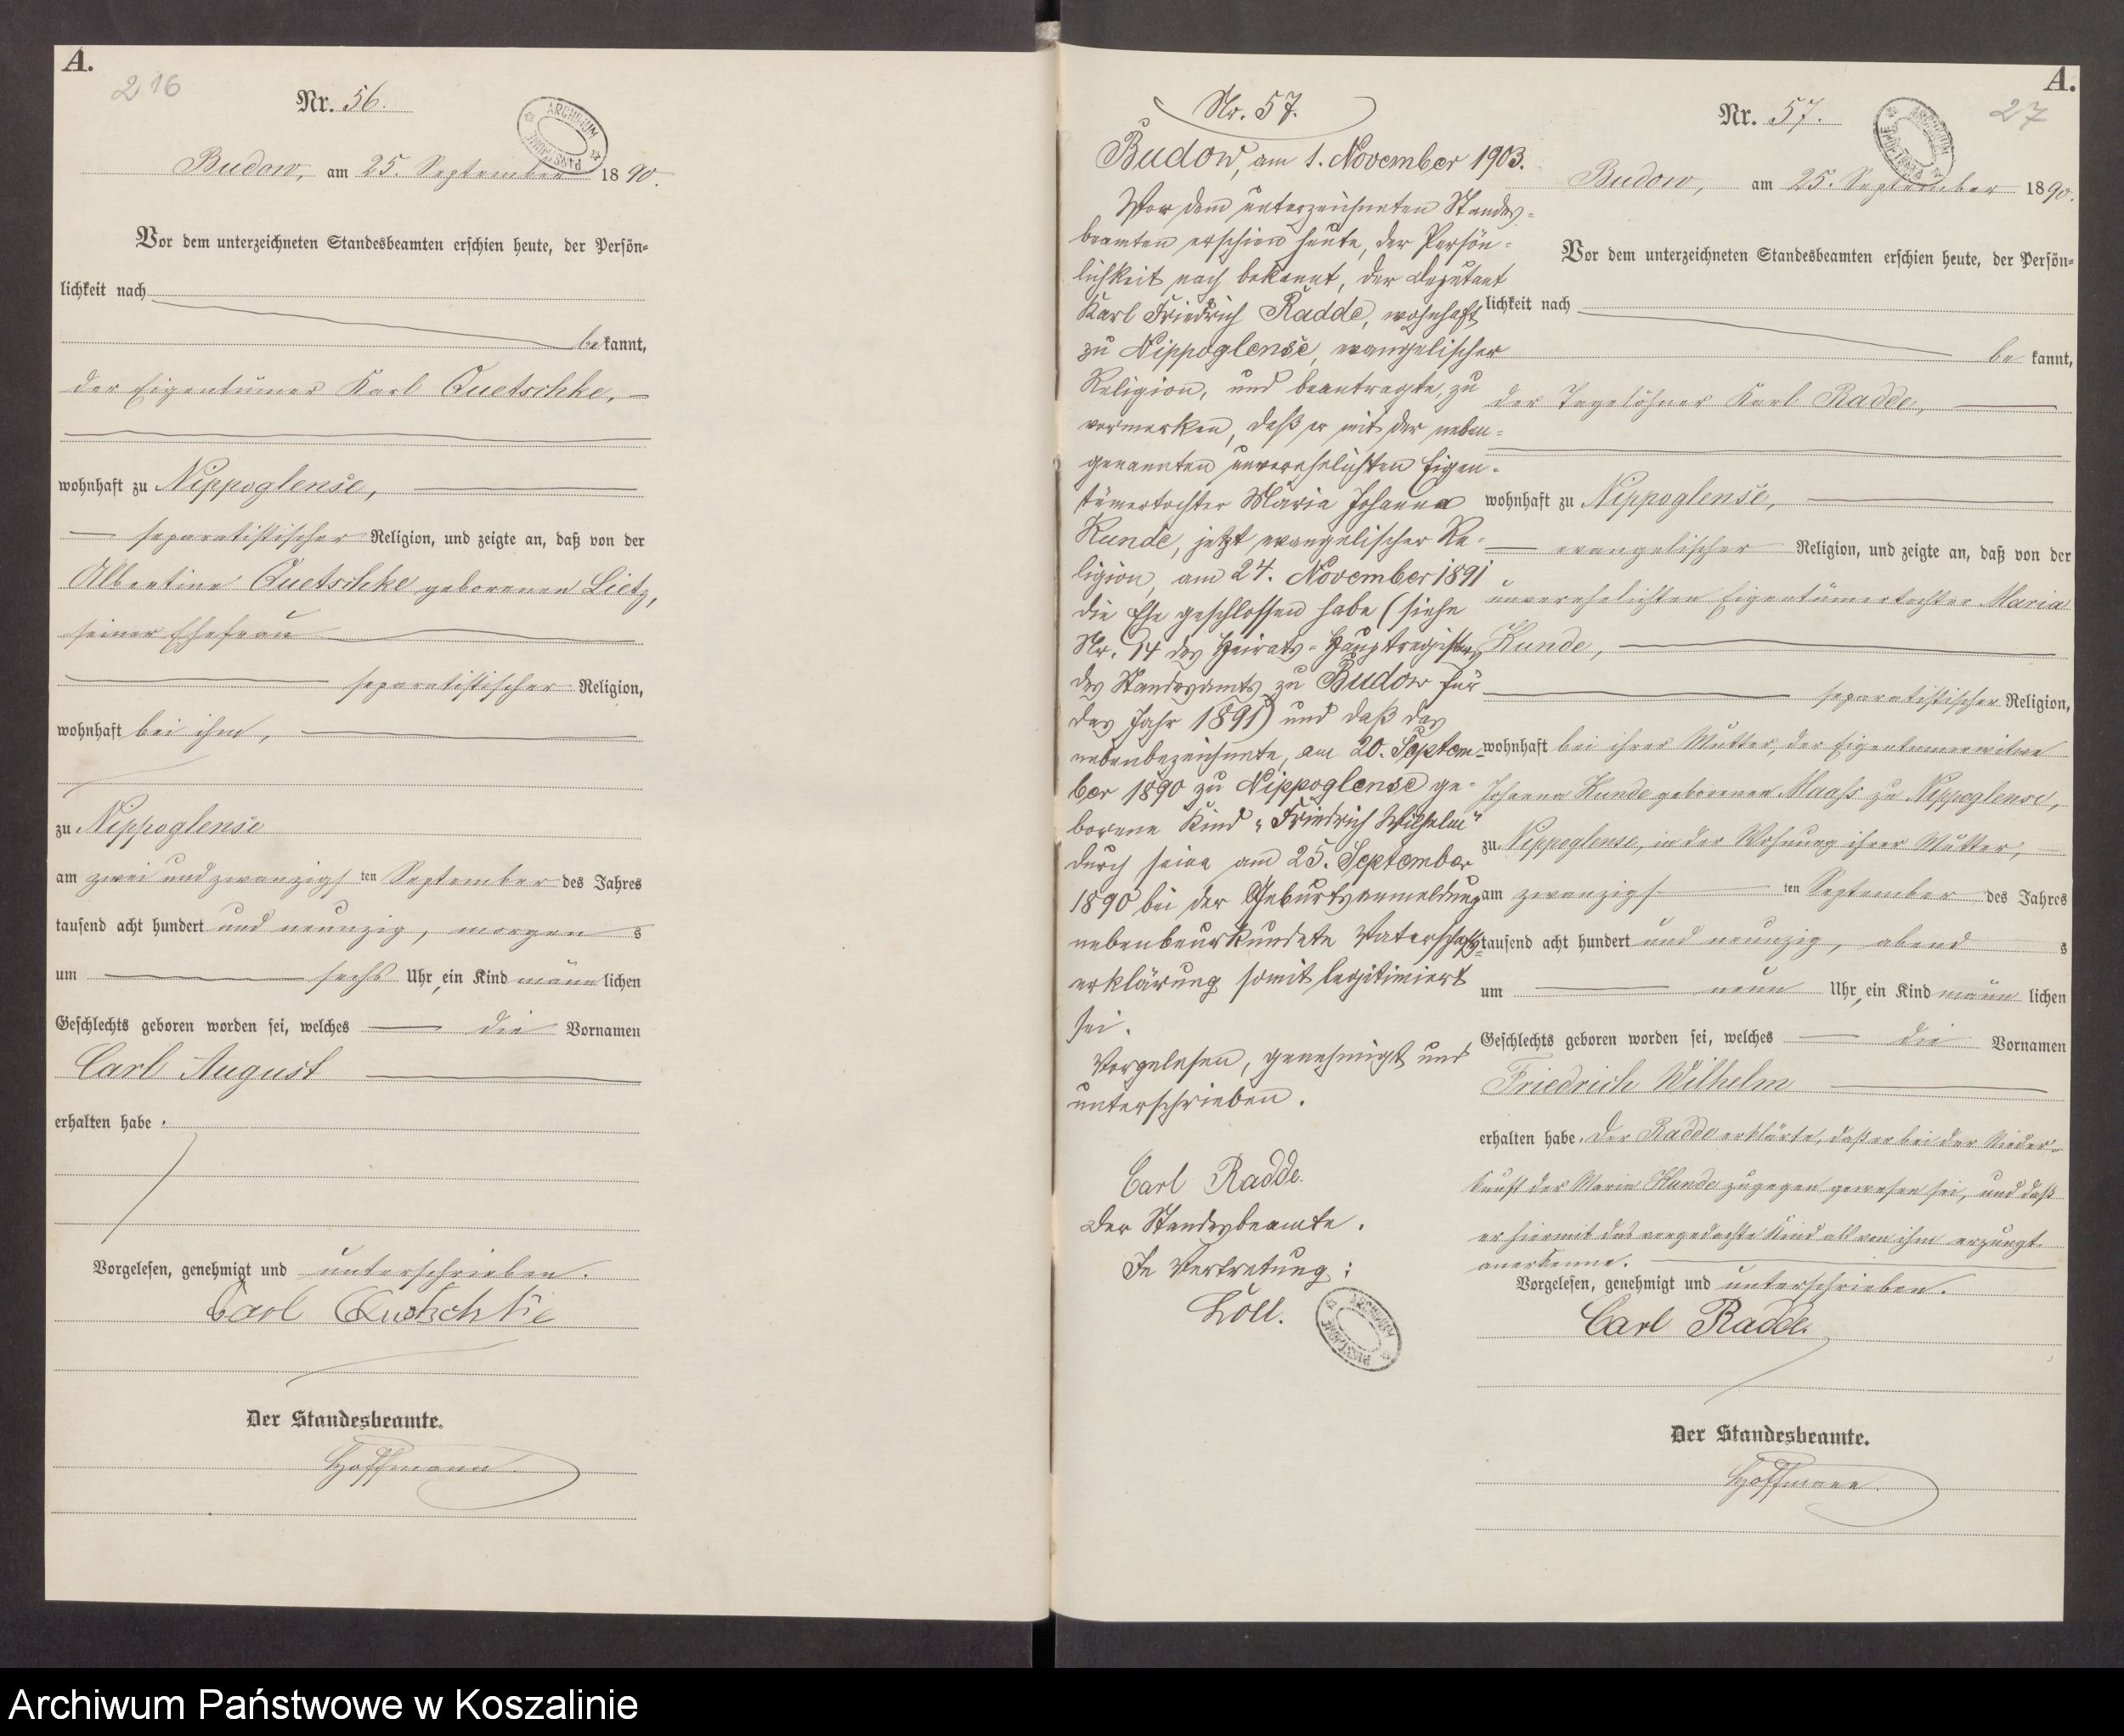 A.
216
Nr. 56.
ARCHIWUM PAŃSTWOWE
Budow, am 25. September 1890.
Vor dem unterzeichneten Standesbeamten erschien heute, der Persön=
lichkeit nach
be kannt,
der Eigentümer Karl Quetschke,
wohnhaft zu Nippoglense,
separatistischer Religion, und zeigte an, daß von der
Albertine Quetschke geborenen Lietz,
seiner Ehefrau
separatistischer Religion,
wohnhaft bei ihm,
zu Nippoglense
am zwei und zwanzigs ten September des Jahres
tausend acht hundert und neunzig, morgen s
um sechs Uhr, ein Kind männ lichen
Geschlechts geboren worden sei, welches die Vornamen
Carl August
erhalten habe.
Vorgelesen, genehmigt und unterschrieben.
Carl Quetschke
Der Standesbeamte.
Hoffmann.
Nr. 57.
Budow, am 1. November 1903.
Vor dem unterzeichneten Standes-
beamten erschien heute, der Persön-
lichkeit nach bekannt, der Deputant
Karl Friedrich Radde, wohnhaft
zu Nippoglense, evangelischer
Religion, und beantragte, zu
vermerken, daß er mit der neben-
genannten unverehelichten Eigen-
tümertochter Maria Johanna
Kunde, jetzt evangelischer Re-
ligion, am 24. November 1891
die Ehe geschlossen habe (siehe
Nr. 14 des Heirats-Hauptregisters
des Standesamts zu Budow für
das Jahr 1891) und daß das
nebenbezeichnete, am 20. Septem-
ber 1890 zu Nippoglense ge-
borene Kind "Friedrich Wilhelm"
durch seine am 25. September
1890 bei der Geburtsanmeldung
nebenbeurkundete Vaterschafts-
erklärung somit legitimiert
sei.
Vorgelesen, genehmigt und
unterschrieben.
Carl Radde.
Der Standesbeamte.
In Vertretung:
Löll.
ARCHIWUM PAŃSTWOWE
A.
27
Nr. 57.
ARCHIWUM PAŃSTWOWE
Budow, am 25. September 1890.
Vor dem unterzeichneten Standesbeamten erschien heute, der Persön=
lichkeit nach
be kannt,
der Tagelöhner Karl Radde,
wohnhaft zu Nippoglense,
evangelischer Religion, und zeigte an, daß von der
unverehelichten Eigentümertochter Maria
Kunde,
separatistischer Religion,
wohnhaft bei ihrer Mutter, der Eigentümerwitwe
Johanna Kunde geborenen Maaß zu Nippoglense,
zu Nippoglense, in der Wohnung ihrer Mutter,
am zwanzigs ten September des Jahres
tausend acht hundert und neunzig, abend s
um neun Uhr, ein Kind männ lichen
Geschlechts geboren worden sei, welches die Vornamen
Friedrich Wilhelm
erhalten habe. Der Radde erklärte, daß er bei der Nieder-
kunft der Maria Kunde zugegen gewesen sei, und daß
er hiermit das vorgedachte Kind als von ihm erzeugt
anerkenne.
Vorgelesen, genehmigt und unterschrieben.
Carl Radde.
Der Standesbeamte.
Hoffmann.
Archiwum Państwowe w Koszalinie